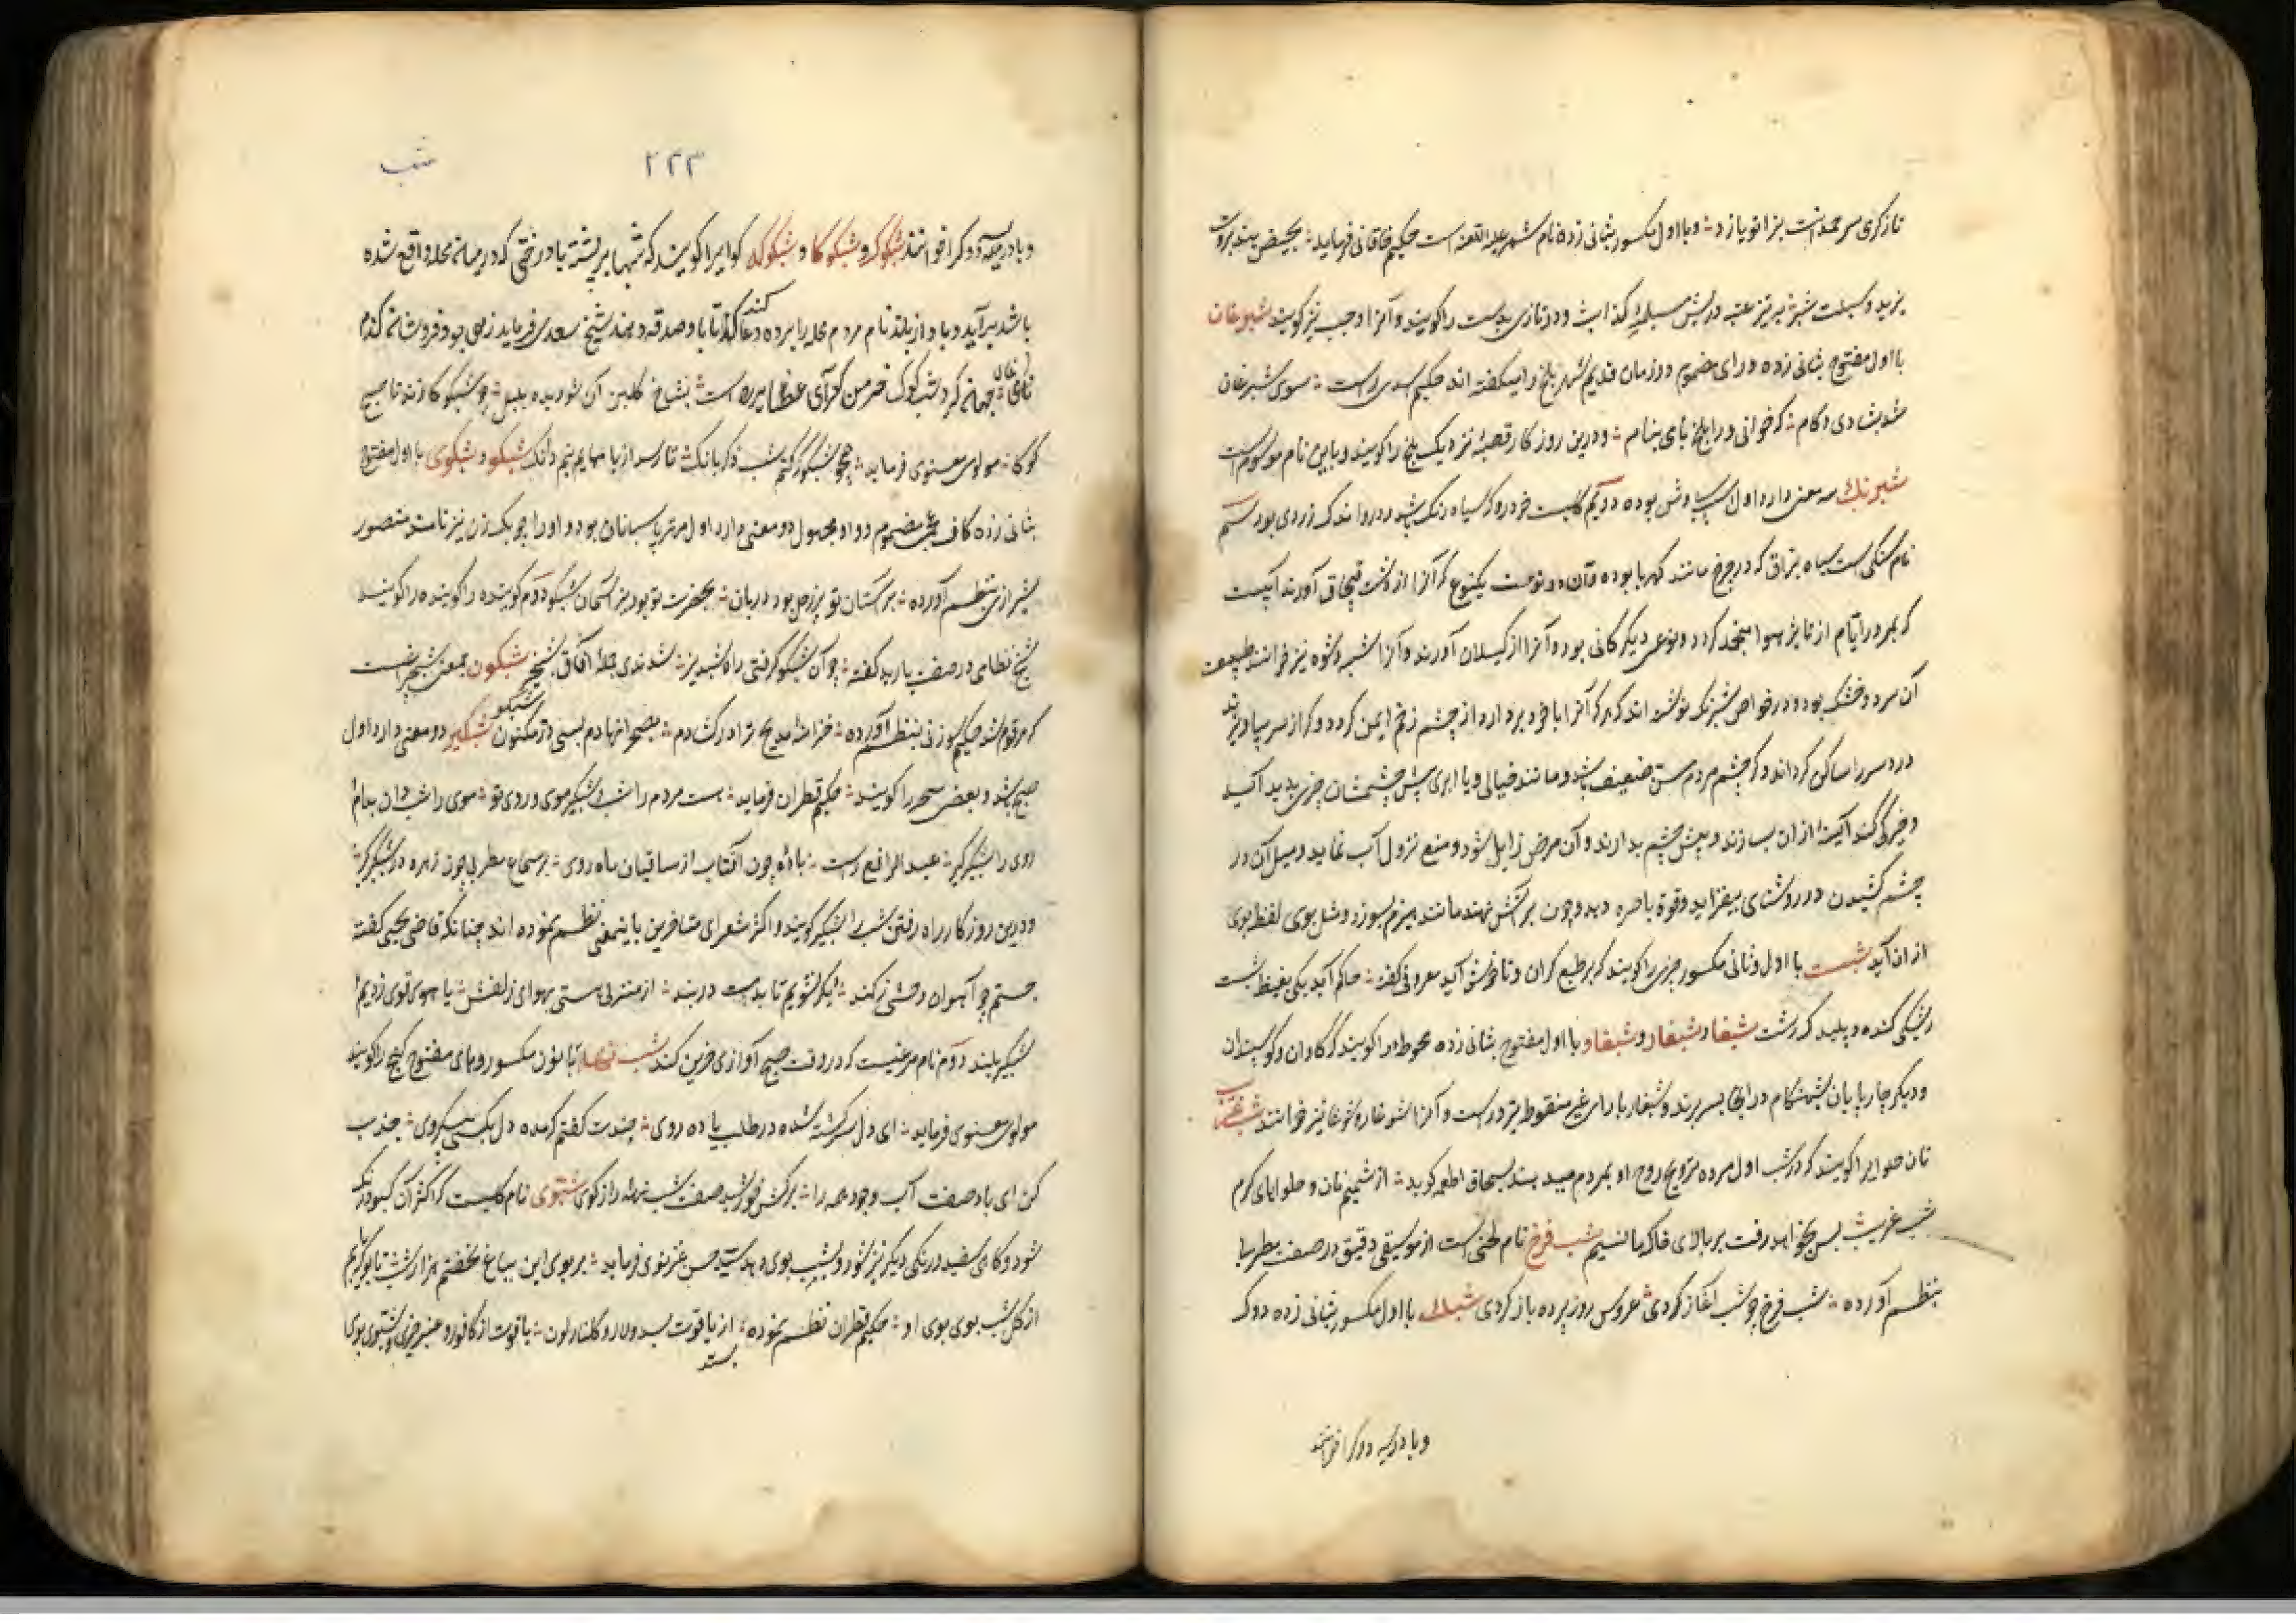 تازکری سر محمد است بزانو یازد و با اول مکسور بثانی زده نام شمر علیه اللعنه است حکیم خاقانی فرماید بحیض هند بروت
یزید و سبلت شمر بتیز عتبه و ریش مسیلمه کذاب و در تازی بدست را گویند و آنرا وجب نیز گویند شبورغان
با اول مفتوح بثانی زده و رای مضموم در زمان قدیم شهر بلخ را میگفته اند حکیم اسدی راست سوی شبرغان
شد بشادی و کام که خوانی ورا بلخ بامی بنام و درین روزکار قصبه نزدیک بلخ را گویند و باین نام موسوم است
شبرنک سه معنی دارد اول اسپ سیاوش بوده دویم کلیست خرد و کرد سیاه رنک باشد و در وی اندک زردی بود سیم
نام سنکی است سیاه براق که در چرخ مانند کهربا بوده و آن دو نوعست یکنوع که آنرا از دشت قبچاق آورند آبیست
که بمرور ایام از تاثیر هوا منجمد کردد و نوعی دیگر کانی بود و آنرا از کیلان آورند و آنرا شبه و شوه نیز خوانند طبیعت
آن سرد و خشک بود و در خواص شبرنک نوشته اند که هر که آنرا با خود دارد از چشم زخم ایمن کردد و کر از سر بیاویزند
درد سر را ساکن کرداند و کر چشم مردم مسن ضعیف باشد و مانند خیالی و یا ابری پیش چشمشان چیزی پدید آید
و خیرکی کند آئینه از ان بسازند و پیش چشم بدارند و آن مرض زایل شود و منع نزول آب نماید و میل آن در
چشم کشیدن در روشنای بیفزاید و قوة باصره دهد و چون بر آتش نهند مانند هیزم بسوزد و مثل بوی نفط بوی
از ان آید شبست با اول و ثانی مکسور چیزی را گویند که بر طبع کران و ناخوش آید معروفی گفته حاکم آید یکی بغیظ شبست
ریشکی کنده و پلید کردشت شبغا و شبغار و شبغاو با اول مفتوح بثانی زده محوطه را گویند که کاوان و کوسپندان
و دیگر چارپایان شب هنگام در آنجا بسر برند و شبغار با رای غیر منقوطه نیز درست و آنرا شوغار و شوغا نیز خوانند شب غریب
نان حلوایرا گویند که در شب اول مرده بترویج روح او بمردم میدهند بسحاق اطعمه کوید از شمیم نان و حلوای کرم
شب غریب بس بخواهد رفت بر بالای خاک ما نسیم شب فرخ نام لحنی است از موسیقی دقیق در صفت مطربها
بنظم آورده شب فرخ چو شب آغاز کردی عروس روز پرده باز کردی شبالی با اول مکسور بثانی زده دوک
و بادریسه دوک را خوانند
شب
۲۲۳
و بادریسه دوک را خوانند شبکوک و شبکوکا و شبکوکه کدایرا گویند که شبها بر پشته یا درختی که در میانه محله واقع شده
باشد برآید و باواز بلند نام مردم محله را برده دعا کند تا باو صدقه دهند شیخ سعدی فرماید زهی جو فروشان گندم
نمای جهان گرد شبکوک خرمن گدای عطا بیده است بشاخ گلبن آن شوریده بلبل چو شبکوکا زند تا صبح
کوکا مولوی معنوی فرماید همچو شبکوک کنم شب ذکر بانک تا رسد از بامهایم نیم دانک شبکو و شبکوی با اول مفتوح
بثانی زده کاف عجمی مضموم و واو مجهول دو معنی دارد اول مهتر پاسبانان بود و او را چوبک زن نیز نامند منصور
شیرازی بنظم آورده بر آستان تو بر زحل بود دربان بحضرت تو بود بر آسمان شبکو دوم کوینده راگویند
شیخ نظامی در صفت باربد گفته چو آن شبکو گرفتی راه شبدیز شدندی جمله آفاق شبخیز شبکون بمعنی شبچراغست
که مرقوم شد حکیم سوزنی بنظم آورده خزانه مدیح ترا در کشادم بصحرا نهادم بسی در مکنون شبکیر دو معنی دارد اول
صبح باشد و بعضی سحر را گویند حکیم قطران فرماید هست مردم را شب و شبکیر موی و روی تو موی را شب دان بدام
روی را شبکیر کیر عبدالرافع راست باده چون آفتاب از ساقیان ماه روی بر سماع مطربی چون زهره در شبکیر کیر
و درین روزکار راه رفتن شب را شبکیر گویند و اکثر شعرای متاخرین باینمعنی نظم نموده اند چنانکه قاضی یحیی گفته
جستم چو آهوان وحشی ز کمند دیگر نشویم تا بدست در بند از منزل هستی بهوای زلفش با هوی قوی زدیم
شبکیر بلند دوم نام مرغیست که در وقت صبح آوازی حزین کند شب نهاد با نون مکسور و های مفتوح کنج را گویند
مولوی معنوی فرماید ای دل سرکشته شده در طلب یاده روی چندت گفتم که مده دل بکسی بیگروی جذب
کن ای باد صفت آب وجود همه را بر کش خورشید صفت شب نهد راز کوی شبوی نام کلیست که اکثر آن کبود رنک
شود و کاهی سفید و رنکی دیگر نیز شود و بشب بوی دهد سید حسن غزنوی فرماید بر بوی این بباغ نخفتم هزار شب تا بو کنیم
از کل شب بوی بوی او حکیم قطران نظم نموده از یاقوت بسد و لاله و کلنار لون یاقوت از کافور و عنبر خیزی و شبوی بوی
بسته